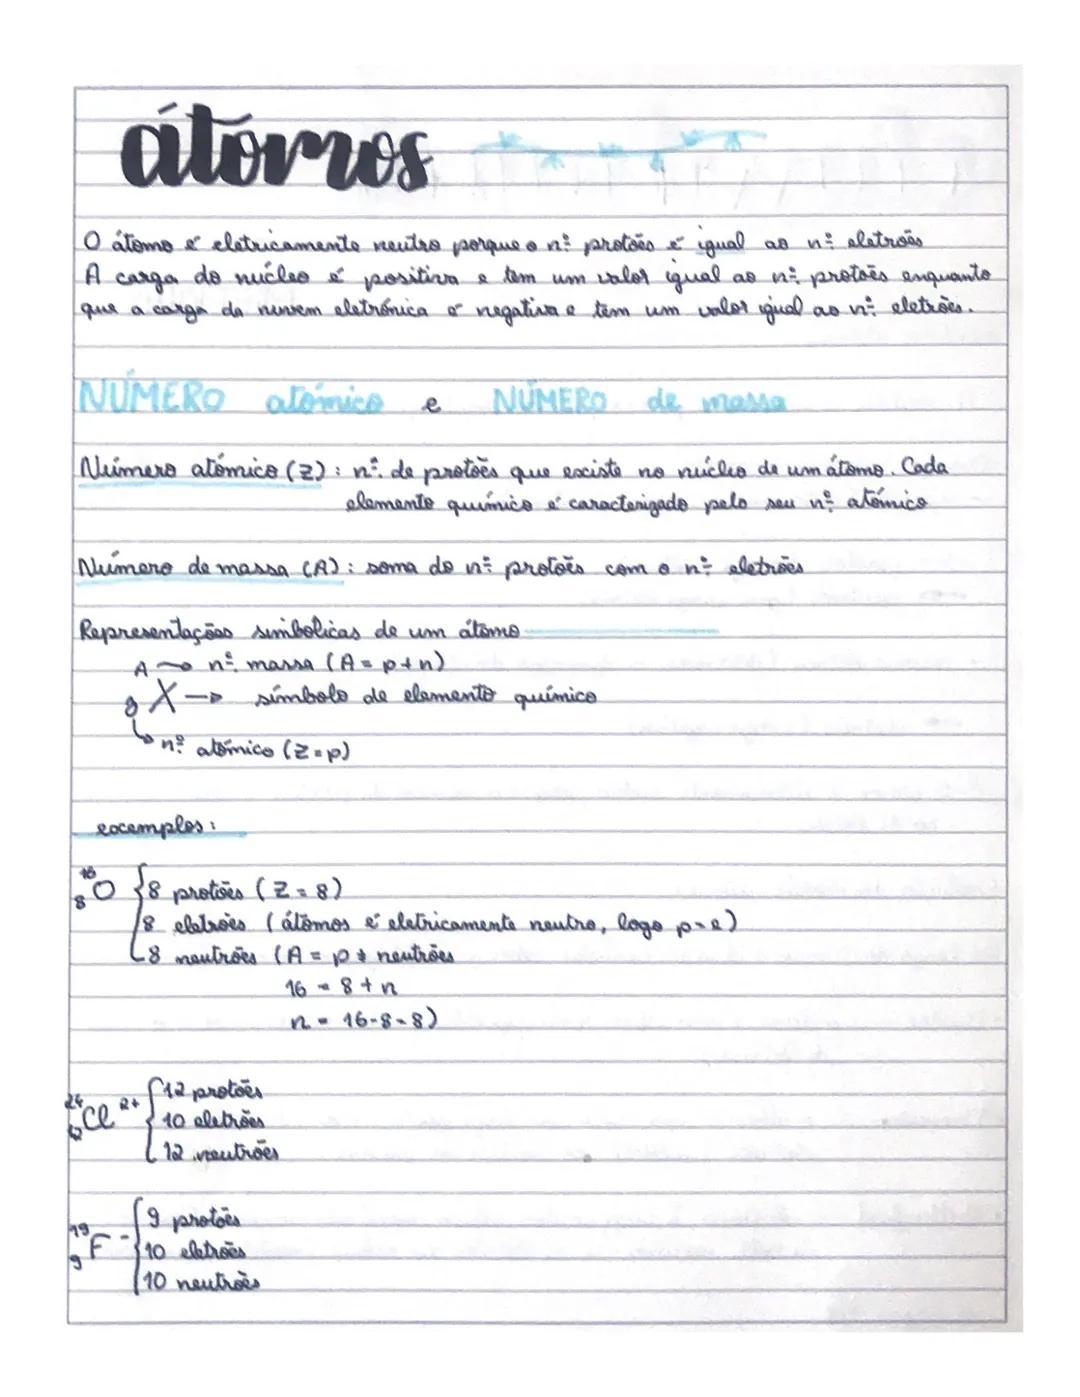 átomos
O átomo é eletricamente neutro porque o nº protões é igual ao nº eletrões
A carga do núcleo é positiva e tem um valor igual ao nº protões enquanto
que a carga da nuvem eletrónica é negativa e tem um valor igual ao nº eletrões.
NÚMERO atómico e NÚMERO de massa
Número atómico (Z): nº de protões que existe no núcleo de um átomo. Cada
elemento químico é caracterizado pelo seu nº atómico
Número de massa (A): soma do nº protões com o nº eletrões
Representações simbolicas de um átomo
A → nº massa (A = p + n)
X → símbolo de elemento químico
nº atómico (Z = p)
exemplos:
16 8 O { 8 protões (Z = 8)
8 eletrões (átomos é eletricamente neutro, logo p = e)
8 neutrões (A = p + neutrões
16 = 8 + n
n = 16-8=8)
24 12 Cl 2+ { 12 protões
10 eletrões
12 neutrões
19 9 F - { 9 protões
10 eletrões
10 neutrões